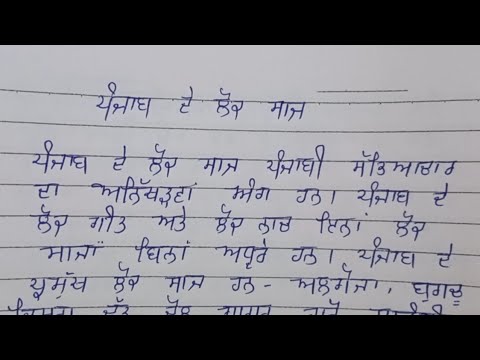 ਪੰਜਾਬ ਦੇ ਲੋਕ ਸਾਜ
ਪੰਜਾਬ ਦੇ ਲੋਕ ਸਾਜ ਪੰਜਾਬੀ ਸੱਭਿਆਚਾਰ
ਦਾ ਅਨਿੱਖੜਵਾਂ ਅੰਗ ਹਨ। ਪੰਜਾਬ ਦੇ
ਲੋਕ ਗੀਤ ਅਤੇ ਲੋਕ ਨਾਚ ਇਨਾਂ ਲੋਕ
ਸਾਜਾਂ ਬਿਨਾਂ ਅਧੂਰੇ ਹਨ। ਪੰਜਾਬ ਦੇ
ਪ੍ਰਮੁੱਖ ਲੋਕ ਸਾਜ ਹਨ- ਅਲਗੋਜਾ, ਬੁਗਚੂ